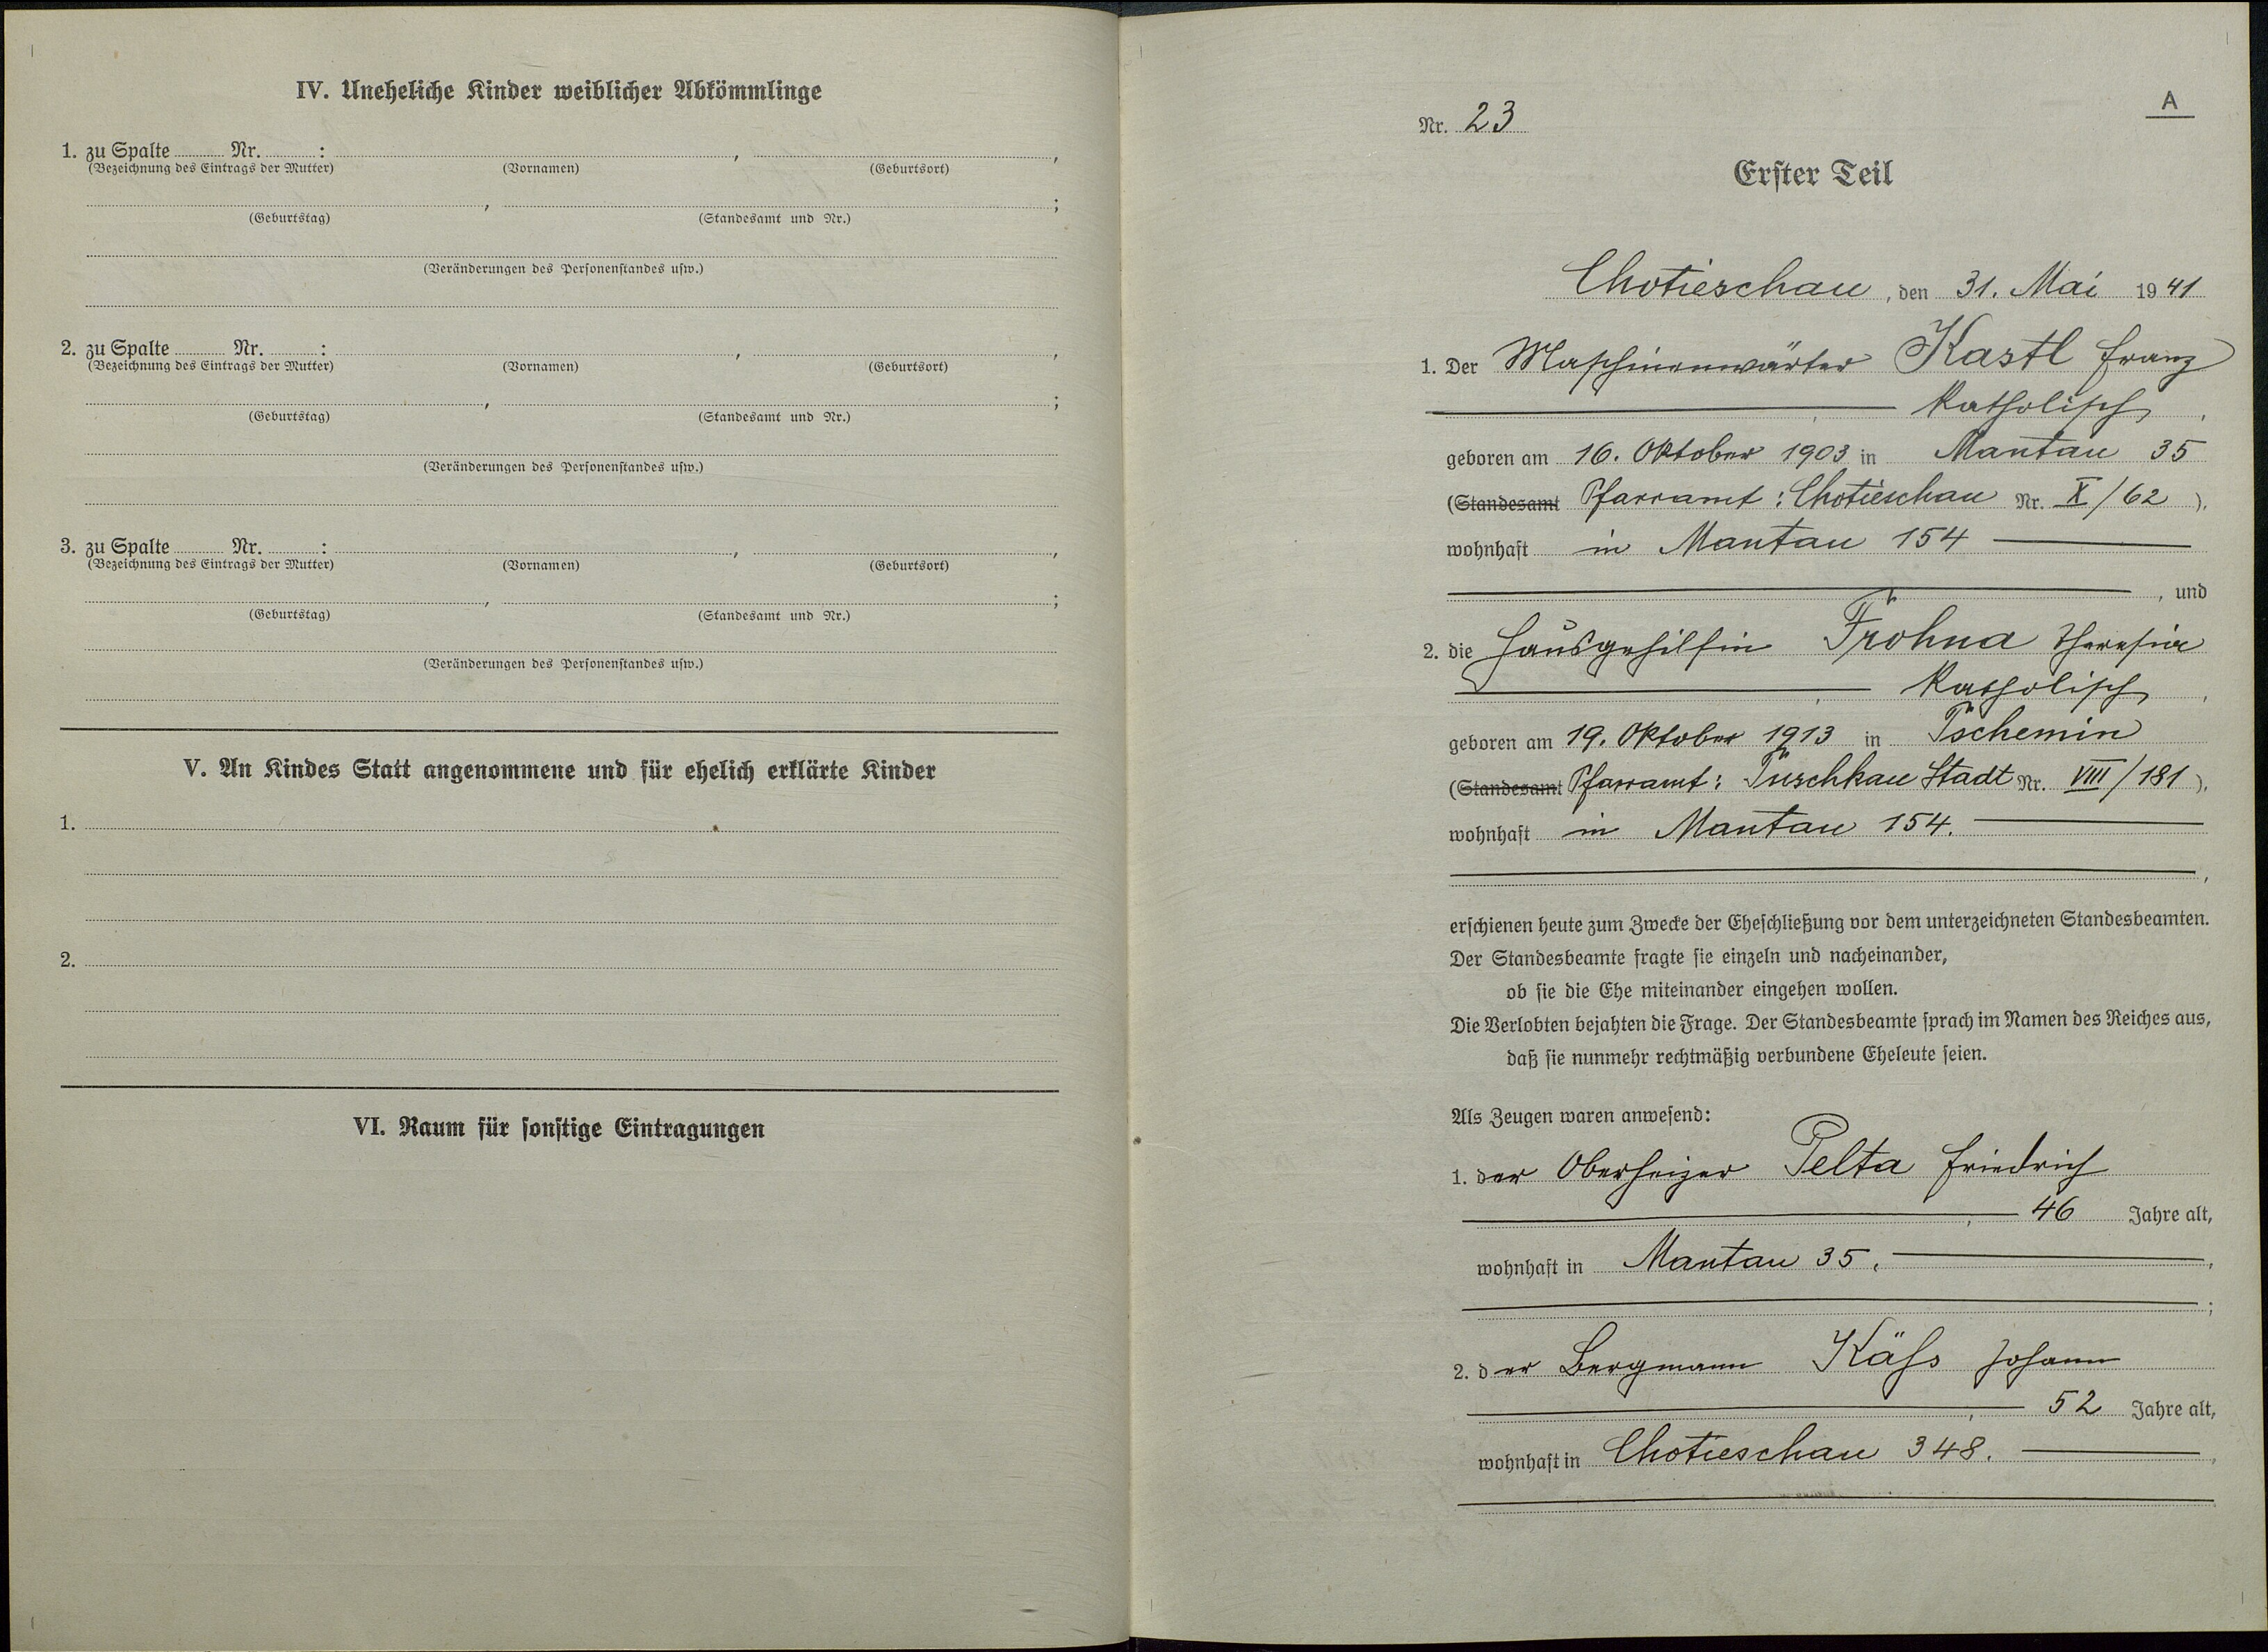 IV. Uneheliche Kinder weiblicher Abkömmlinge
1. zu Spalte Nr. : , ,
(Bezeichnung des Eintrags der Mutter) (Vornamen) (Geburtsort)
, ;
(Geburtstag) (Standesamt und Nr.)
(Veränderungen des Personenstandes usw.)
2. zu Spalte Nr. : , ,
(Bezeichnung des Eintrags der Mutter) (Vornamen) (Geburtsort)
, ;
(Geburtstag) (Standesamt und Nr.)
(Veränderungen des Personenstandes usw.)
3. zu Spalte Nr. : , ,
(Bezeichnung des Eintrags der Mutter) (Vornamen) (Geburtsort)
, ;
(Geburtstag) (Standesamt und Nr.)
(Veränderungen des Personenstandes usw.)
V. An Kindes Statt angenommene und für ehelich erklärte Kinder
1.
2.
VI. Raum für sonstige Eintragungen
A
Nr. 23
Erster Teil
Chotieschau, den 31. Mai 1941
1. Der Maschinenwärter Kastl Franz
, katholisch,
geboren am 16. Oktober 1903 in Mantau 35
(Standesamt Pfarramt: Chotieschau Nr. X/62),
wohnhaft in Mantau 154
, und
2. die Hausgehilfin Frohna Theresia
, katholisch,
geboren am 19. Oktober 1913 in Tschemin
(Standesamt Pfarramt: Tuschkau Stadt Nr. VIII/181),
wohnhaft in Mantau 154.
,
erschienen heute zum Zwecke der Eheschließung vor dem unterzeichneten Standesbeamten.
Der Standesbeamte fragte sie einzeln und nacheinander,
ob sie die Ehe miteinander eingehen wollen.
Die Verlobten bejahten die Frage. Der Standesbeamte sprach im Namen des Reiches aus,
daß sie nunmehr rechtmäßig verbundene Eheleute seien.
Als Zeugen waren anwesend:
1. der Oberheizer Pelta Friedrich
, 46 Jahre alt,
wohnhaft in Mantau 35. ,
;
2. der Bergmann Käss Johann
, 52 Jahre alt,
wohnhaft in Chotieschau 348. ,